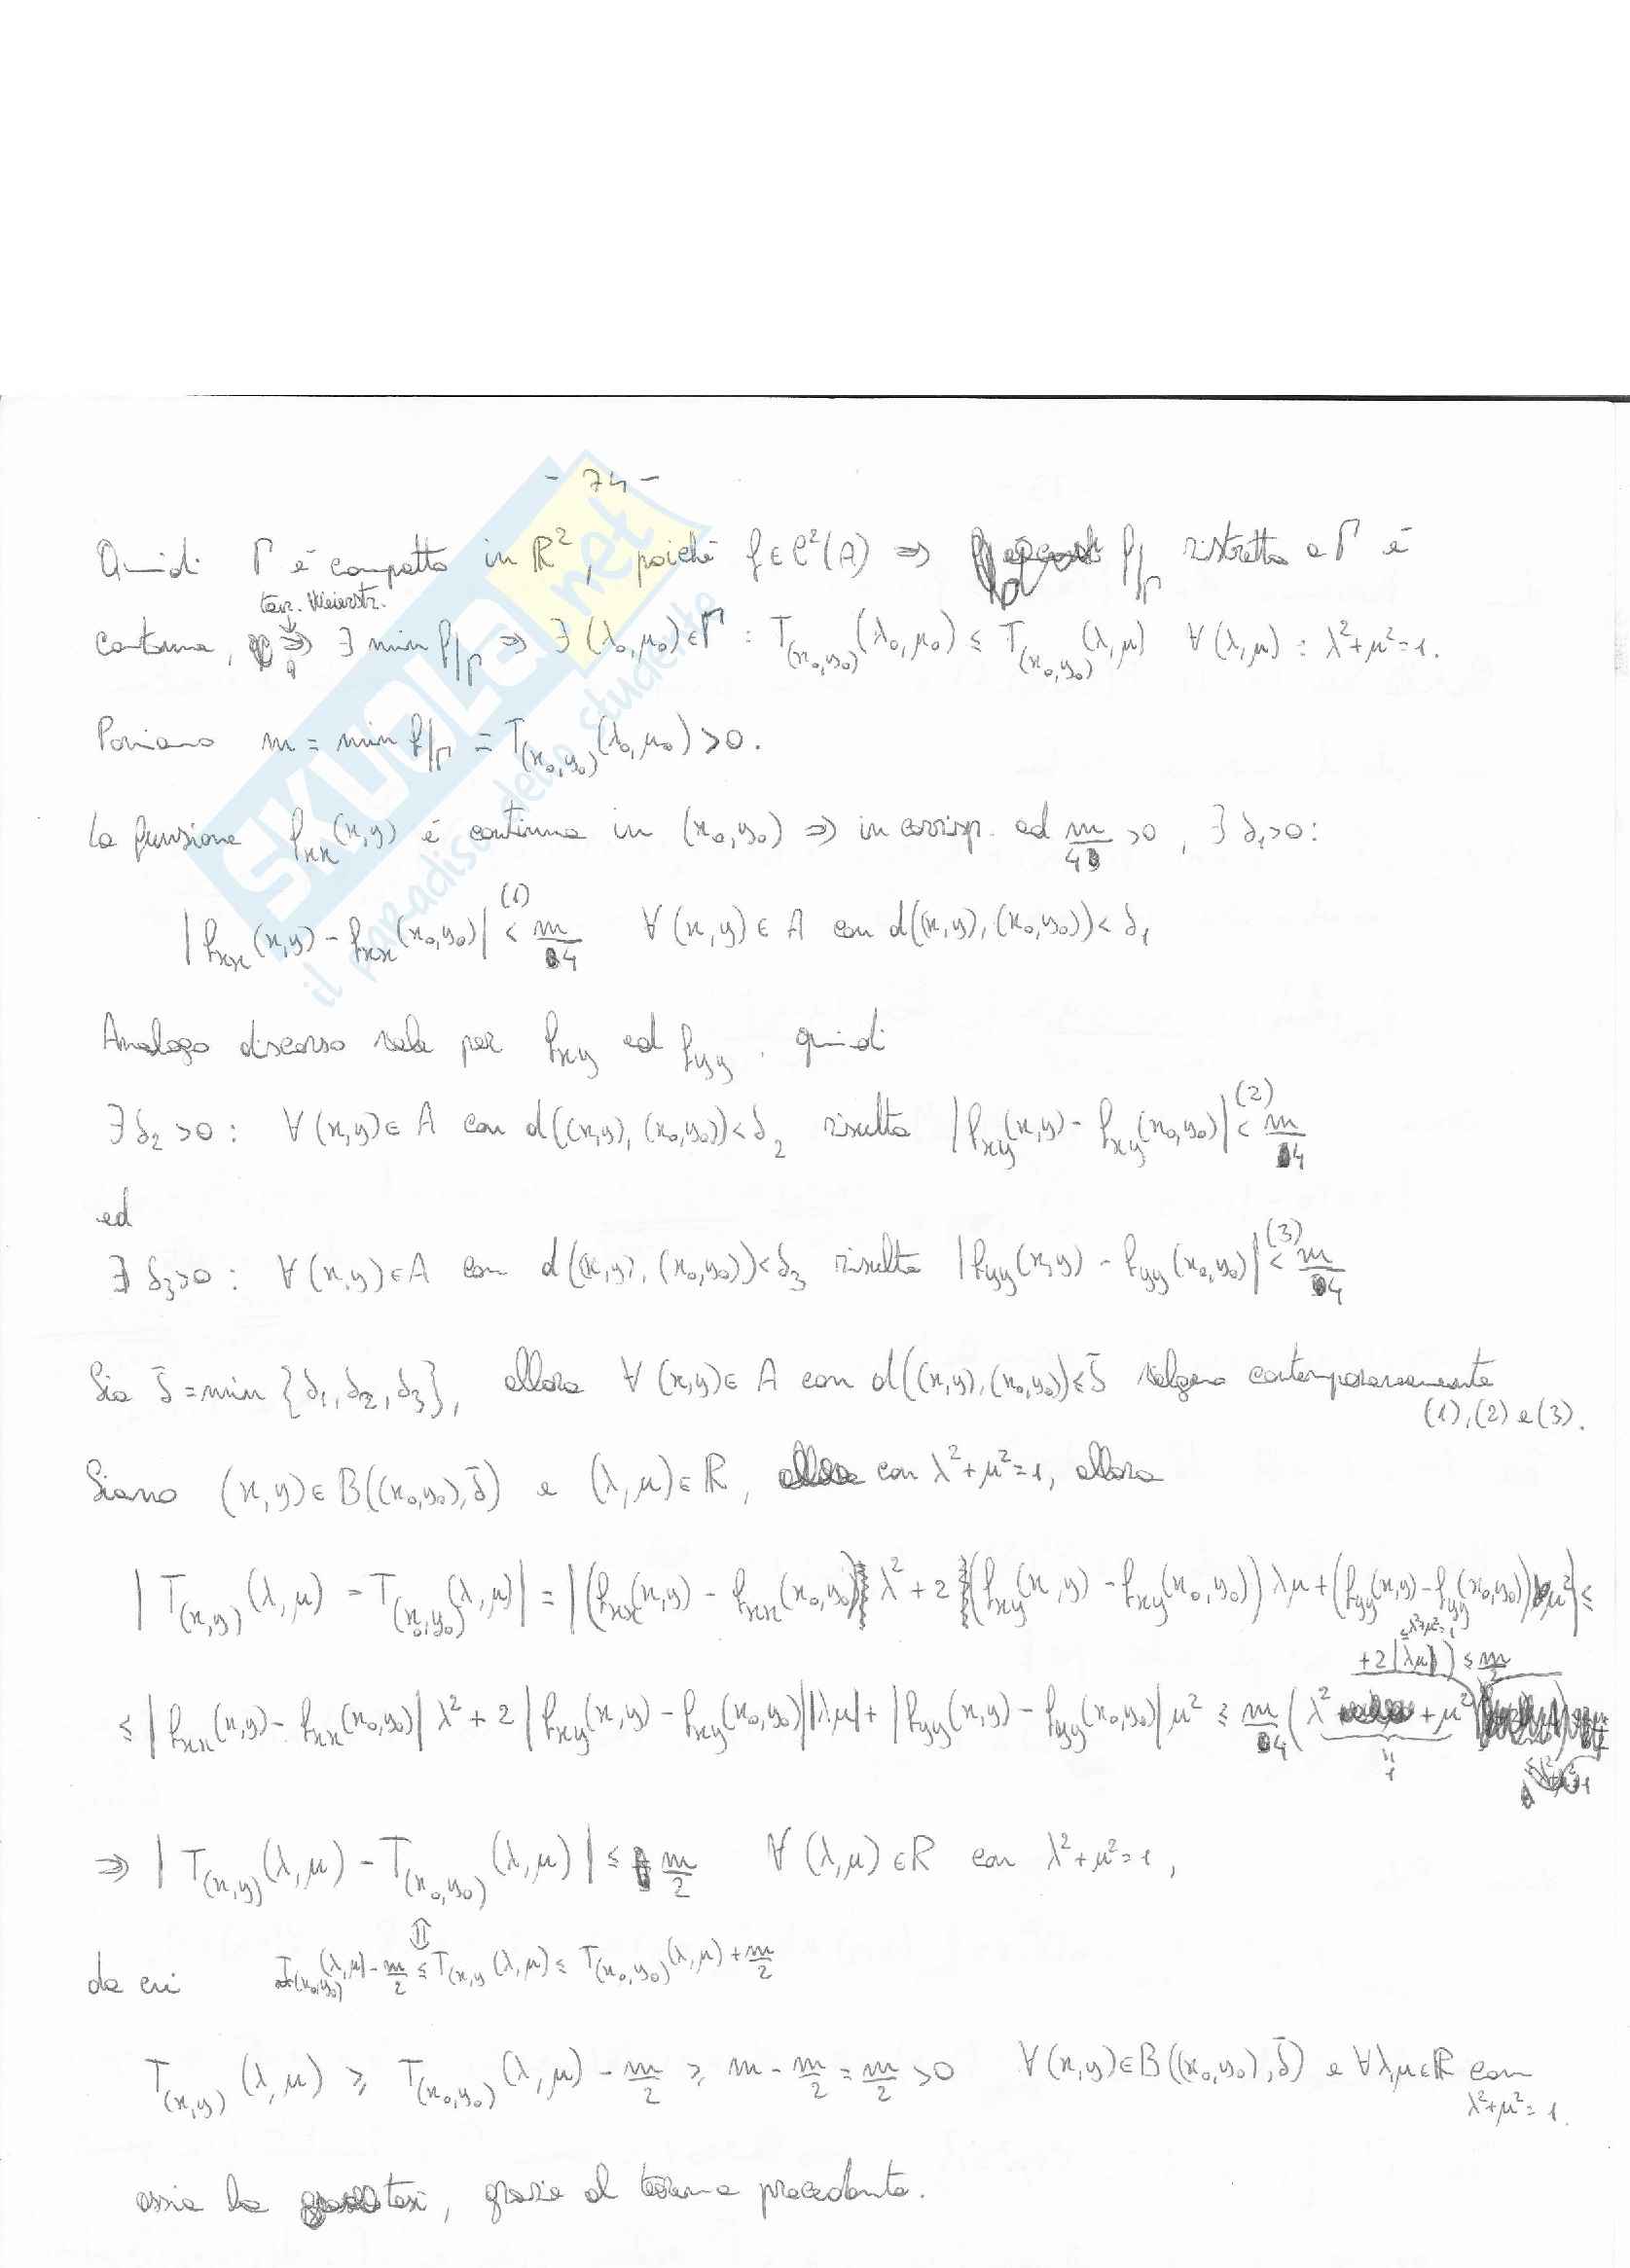 - 74 -
Quindi Γ è compatto in ℝ², poiché f ∈ C²(A) ⇒ f|Γ ristretta a Γ è
teor. Weierstr.
continua, ⇒ ∃ min f|Γ ⇒ ∃ (λ₀,μ₀) ∈ Γ : T(x₀,y₀)(λ₀,μ₀) ≤ T(x₀,y₀)(λ,μ) ∀(λ,μ) : λ²+μ²=1.
Poniamo m = min f|Γ = T(x₀,y₀)(λ₀,μ₀) > 0.
La funzione fxx(x,y) è continua in (x₀,y₀) ⇒ in corrisp. ad m/4 > 0, ∃ δ₁>0:
|fxx(x,y) - fxx(x₀,y₀)| <(1) m/4 ∀(x,y) ∈ A con d((x,y),(x₀,y₀)) < δ₁
Analogo discorso vale per fxy ed fyy. quindi
∃ δ₂ > 0 : ∀(x,y) ∈ A con d((x,y),(x₀,y₀)) < δ₂ risulta |fxy(x,y) - fxy(x₀,y₀)| <(2) m/4
ed
∃ δ₃>0 : ∀(x,y) ∈ A con d((x,y),(x₀,y₀)) < δ₃ risulta |fyy(x,y) - fyy(x₀,y₀)| <(3) m/4
Sia δ̄ = min {δ₁, δ₂, δ₃}, allora ∀(x,y) ∈ A con d((x,y),(x₀,y₀)) ≤ δ̄ valgono contemporaneamente
(1), (2) e (3).
Siano (x,y) ∈ B((x₀,y₀),δ̄) e (λ,μ) ∈ ℝ, con λ²+μ²=1, allora
|T(x,y)(λ,μ) - T(x₀,y₀)(λ,μ)| = |(fxx(x,y) - fxx(x₀,y₀)) λ² + 2(fxy(x,y) - fxy(x₀,y₀)) λμ + (fyy(x,y) - fyy(x₀,y₀)) μ²| ≤
≤ λ²+μ²=1
+2|λμ|) ≤ m/2
≤ |fxx(x,y) - fxx(x₀,y₀)| λ² + 2 |fxy(x,y) - fxy(x₀,y₀)||λμ| + |fyy(x,y) - fyy(x₀,y₀)| μ² ≤ m/4 (λ² + μ²
1
⇒ |T(x,y)(λ,μ) - T(x₀,y₀)(λ,μ)| ≤ m/2 ∀(λ,μ) ∈ ℝ con λ²+μ²=1,
⇕
da cui T(x₀,y₀)(λ,μ) - m/2 ≤ T(x,y(λ,μ) ≤ T(x₀,y₀)(λ,μ) + m/2
T(x,y)(λ,μ) ≥ T(x₀,y₀)(λ,μ) - m/2 ≥ m - m/2 = m/2 > 0 ∀(x,y) ∈ B((x₀,y₀),δ̄) e ∀λ,μ ∈ ℝ con
λ²+μ²=1.
ossia la tesi, grazie al teorema precedente.
SKUOLA.net
il paradiso dello studente